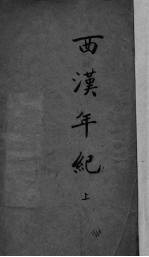 西漢年紀
上